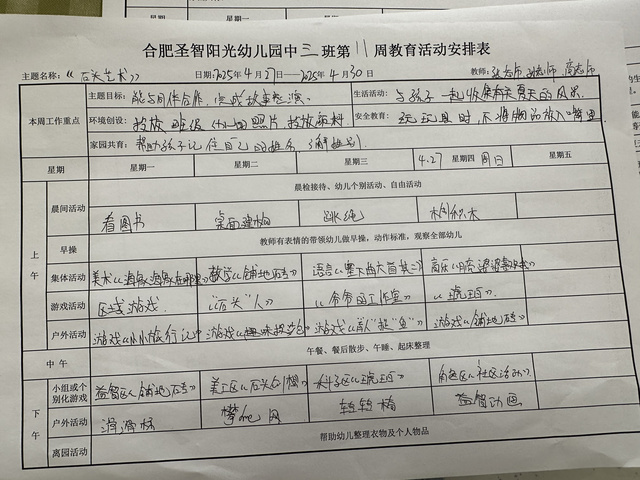 合肥圣智阳光幼儿园中三班第11周教育活动安排表
主题名称：《石头艺术》 日期：2025年4月27日—2025年4月30日 教师：
本周工作重点 主题目标：能与同伴合作，完成故事表演。 生活活动：与孩子一起收集有关夏天的
环境创设： 班级 照片， 安全教育：玩玩具时，不将物品放入嘴里
家园共育：帮助孩子记住自己的姓名，了解姓别
星期 星期一 星期二 星期三 4.27 星期四 周日 星期五
上午 晨检接待、幼儿个别活动、自由活动
晨间活动 看图书 桌面建构 跳绳 积木
早操 教师有表情的带领幼儿做早操，动作标准，观察全部幼儿
集体活动 美术《 》 数学《铺地砖》 语言《 》 音乐《 》
游戏活动 区域游戏 “石头”人》 《爷爷的工作室》 《琥珀》
户外活动 游戏《小小旅行记》 游戏《趣味投沙包》 游戏《 》 游戏《铺地砖》
中午 午餐、餐后散步、午睡、起床整理
下午 小组或个别化游戏 益智区《铺地砖》 美工区《石头创想》 科学区《琥珀》 角色区《社区活动》
户外活动 滑滑梯 攀爬网 转转椅 益智动画
离园活动 帮助幼儿整理衣物及个人物品